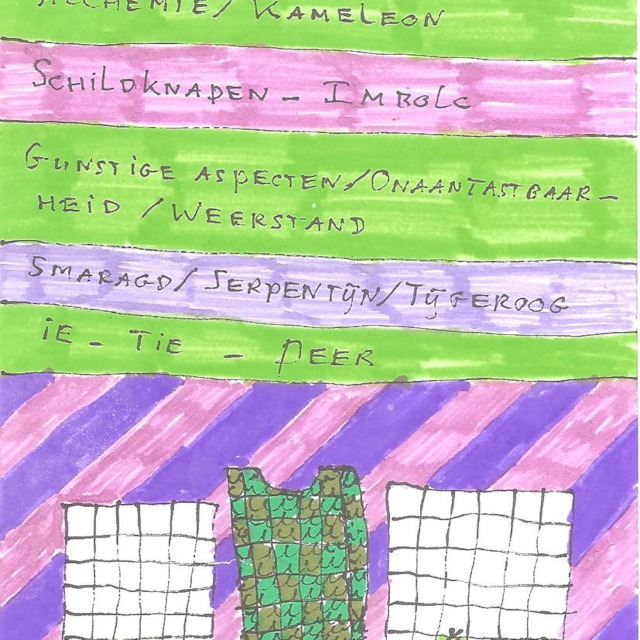 ALCHEMIE/ KAMELEON
SCHILDKNAPEN – IMBOLC
GUNSTIGE ASPECTEN/ONAANTASTBAAR–
HEID /WEERSTAND
SMARAGD/SERPENTIJN/TIJGEROOG
IE – TIE – PEER